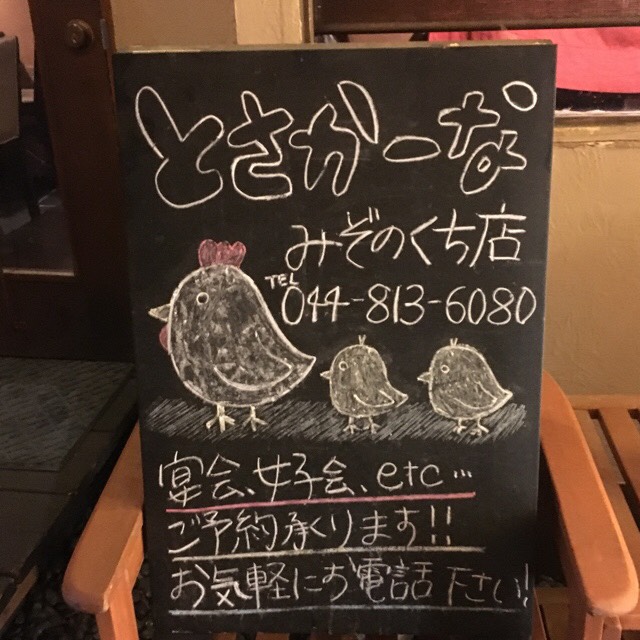 とさかーな
みぞのくち店
TEL
044-813-6080
宴会、女子会、etc…
ご予約承ります!!
お気軽にお電話下さい!